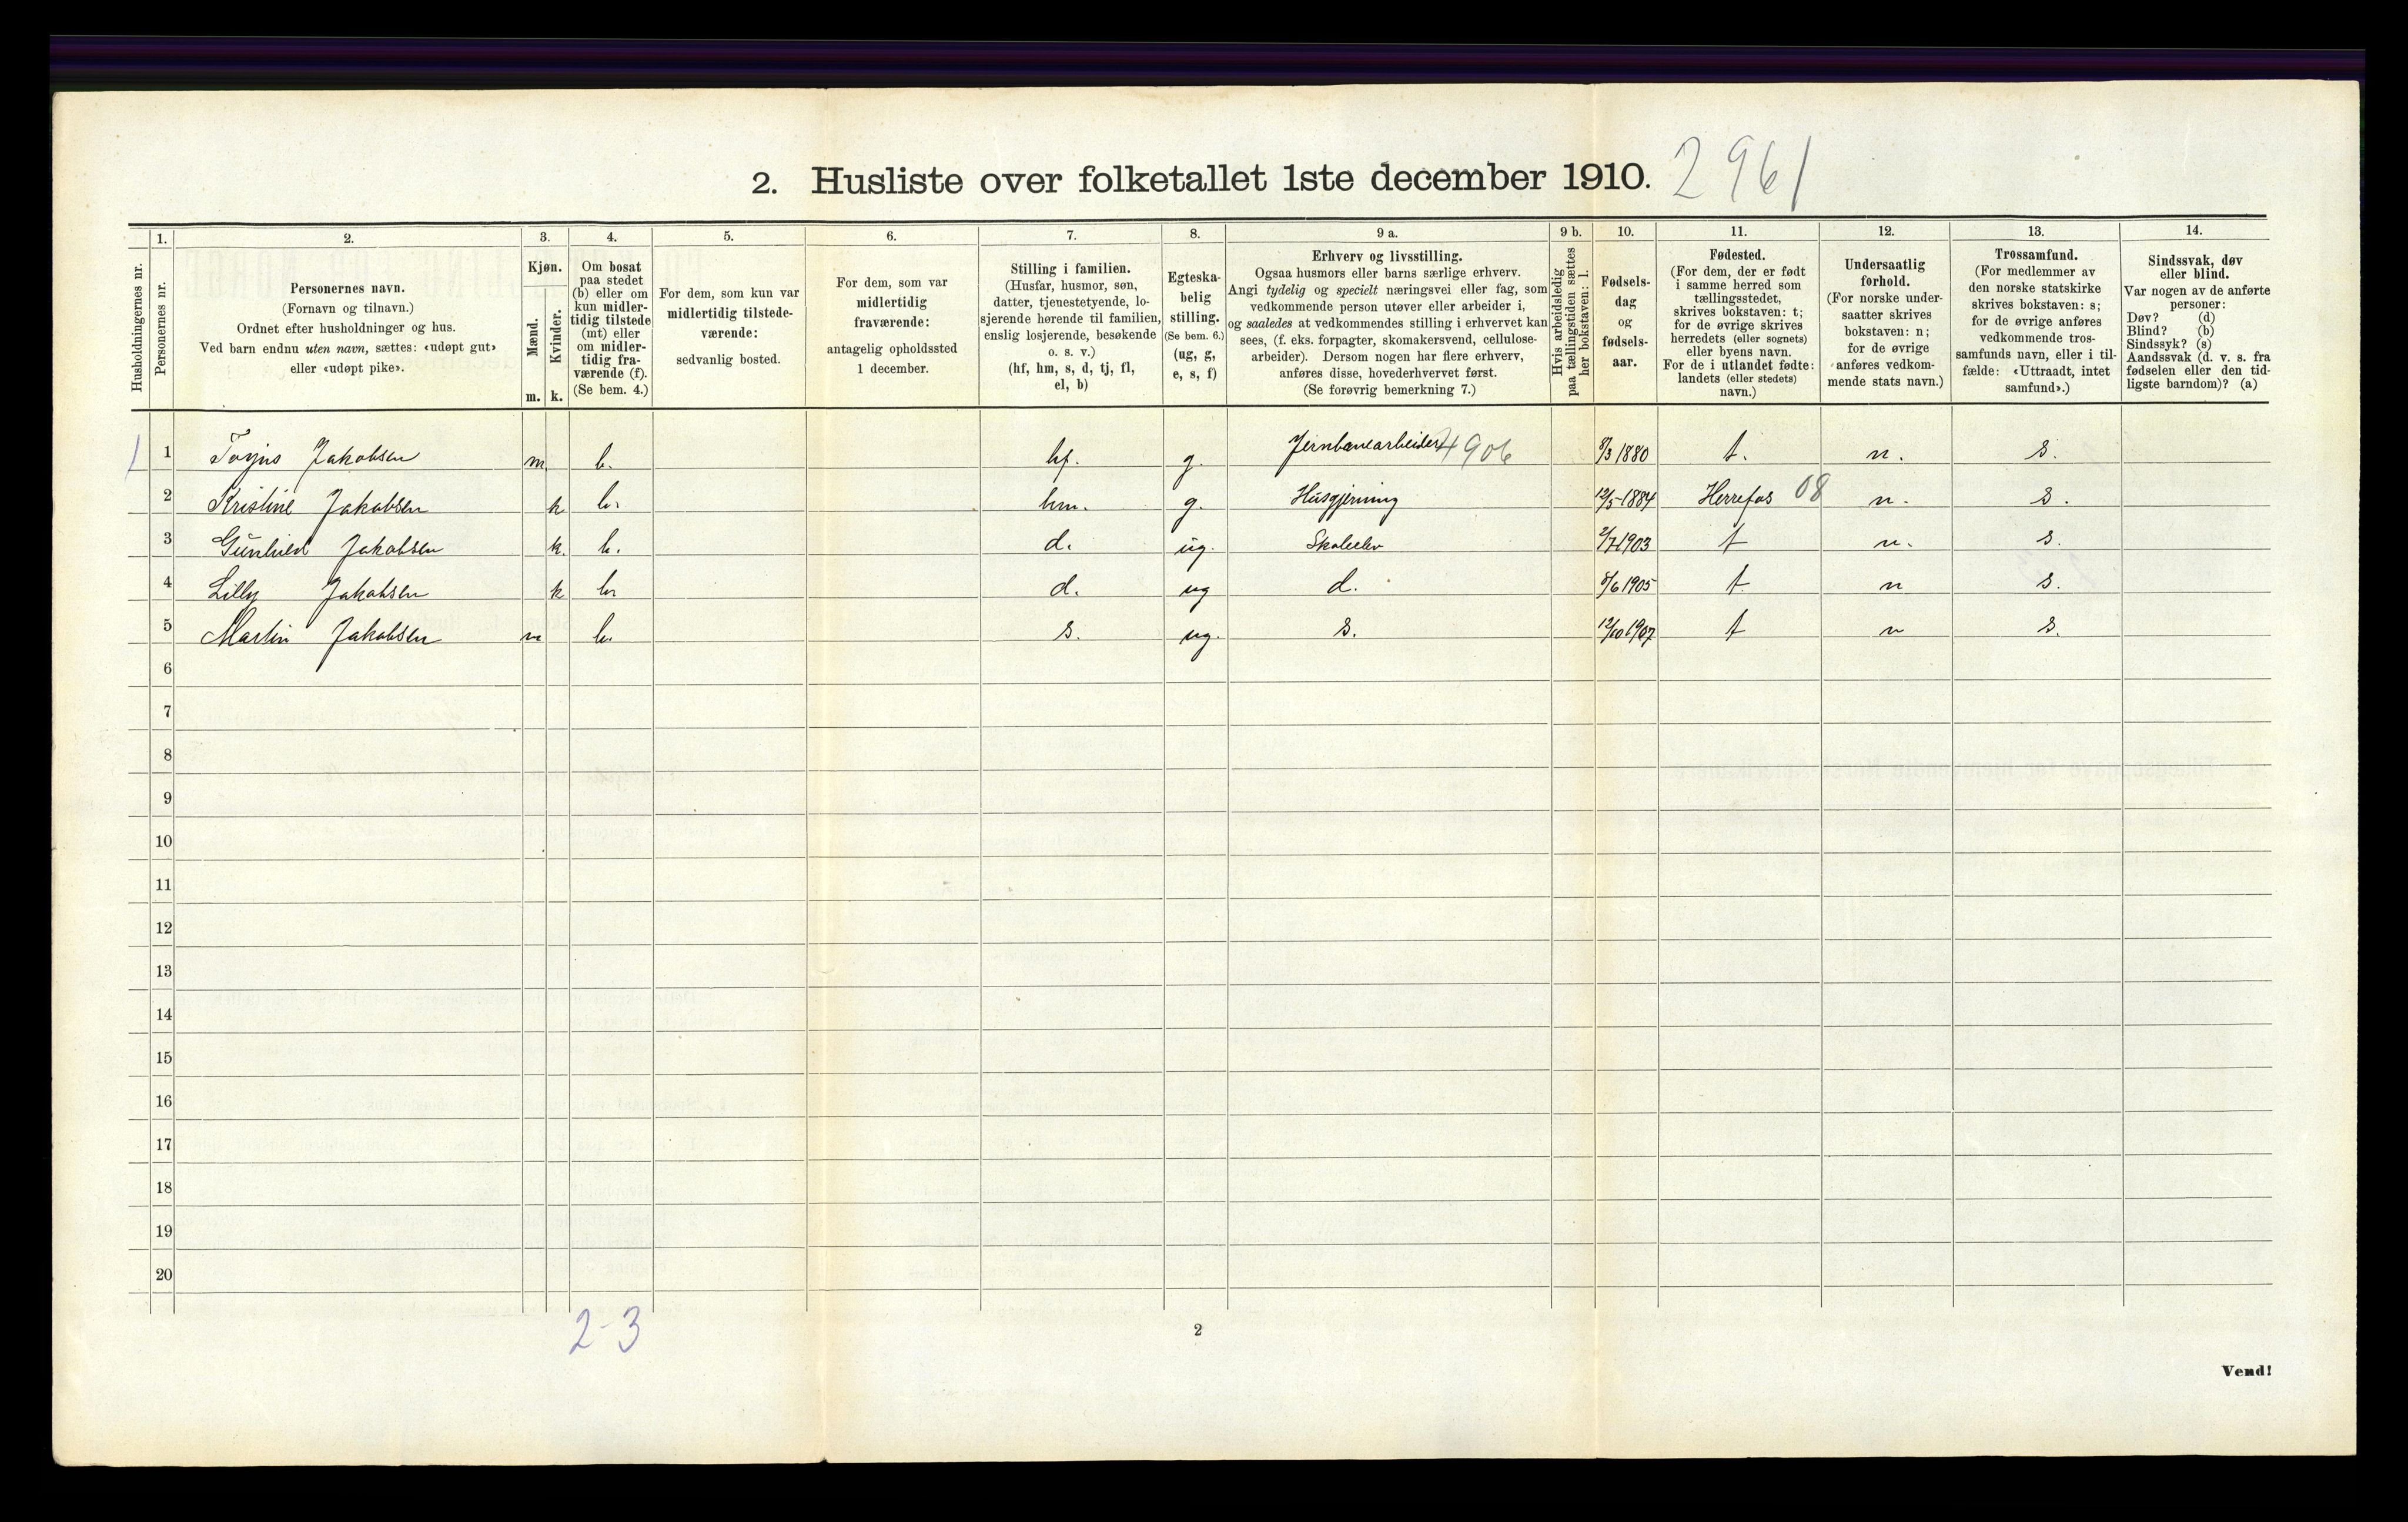 2. Husliste over folketallet 1ste december 1910. 2961
Husholdningernes nr.
1.
Personernes nr.
2.
Personernes navn.
(Fornavn og tilnavn.)
Ordnet efter husholdninger og hus.
Ved barn endnu uten navn, sættes: «udøpt gut»
eller «udøpt pike».
3.
Kjøn.
Mænd.
Kvinder.
m. k.
4.
Om bosat
paa stedet
(b) eller om
kun midler-
tidig tilstede
(mt) eller
om midler-
tidig fra-
værende (f).
(Se bem. 4.)
5.
For dem, som kun var
midlertidig tilstede-
værende:
sedvanlig bosted.
6.
For dem, som var
midlertidig
fraværende:
antagelig opholdssted
1 december.
7.
Stilling i familien.
(Husfar, husmor, søn,
datter, tjenestetyende, lo-
sjerende hørende til familien,
enslig losjerende, besøkende
o. s. v.)
(hf, hm, s, d, tj, fl,
el, b)
8.
Egteska-
belig
stilling.
(Se bem. 6.)
(ug, g,
e, s, f)
9 a.
Erhverv og livsstilling.
Ogsaa husmors eller barns særlige erhverv.
Angi tydelig og specielt næringsvei eller fag, som
vedkommende person utøver eller arbeider i,
og saaledes at vedkommendes stilling i erhvervet kan
sees, (f. eks. forpagter, skomakersvend, cellulose-
arbeider). Dersom nogen har flere erhverv,
anføres disse, hovederhvervet først.
(Se forøvrig bemerkning 7.)
9 b.
Hvis arbeidsledig
paa tællingstiden sættes
her bokstaven: l.
10.
Fødsels-
dag
og
fødsels-
aar.
11.
Fødested.
(For dem, der er født
i samme herred som
tællingsstedet,
skrives bokstaven: t;
for de øvrige skrives
herredets (eller sognets)
eller byens navn.
For de i utlandet fødte:
landets (eller stedets)
navn.)
12.
Undersaatlig
forhold.
(For norske under-
saatter skrives
bokstaven: n;
for de øvrige
anføres vedkom-
mende stats navn.)
13.
Trossamfund.
(For medlemmer av
den norske statskirke
skrives bokstaven: s;
for de øvrige anføres
vedkommende tros-
samfunds navn, eller i til-
fælde: «Uttraadt, intet
samfund».)
14.
Sindssvak, døv
eller blind.
Var nogen av de anførte
personer:
Døv? (d)
Blind? (b)
Sindssyk? (s)
Aandssvak (d. v. s. fra
fødselen eller den tid-
ligste barndom)? (a)
1 1 Jakobsen m. b. hf. g. Jernbanearbeider 4906 8/3 1880 t. n. s.
2 Kristine Jakobsen k b. hm. g. Husgjerning 12/5-1884 Herrefos 08 n. s.
3 Gunhild Jakobsen k. b. d. ug. Skoleelev 2/7 1903 t n. s.
4 Lilly Jakobsen k b. d. ug d. 8/6 1905 t n s.
5 Martin Jakobsen m b. s. ug. s. 12/10 1907 t n s.
6
7
8
9
10
11
12
13
14
15
16
17
18
19
20
2-3
2
Vend!